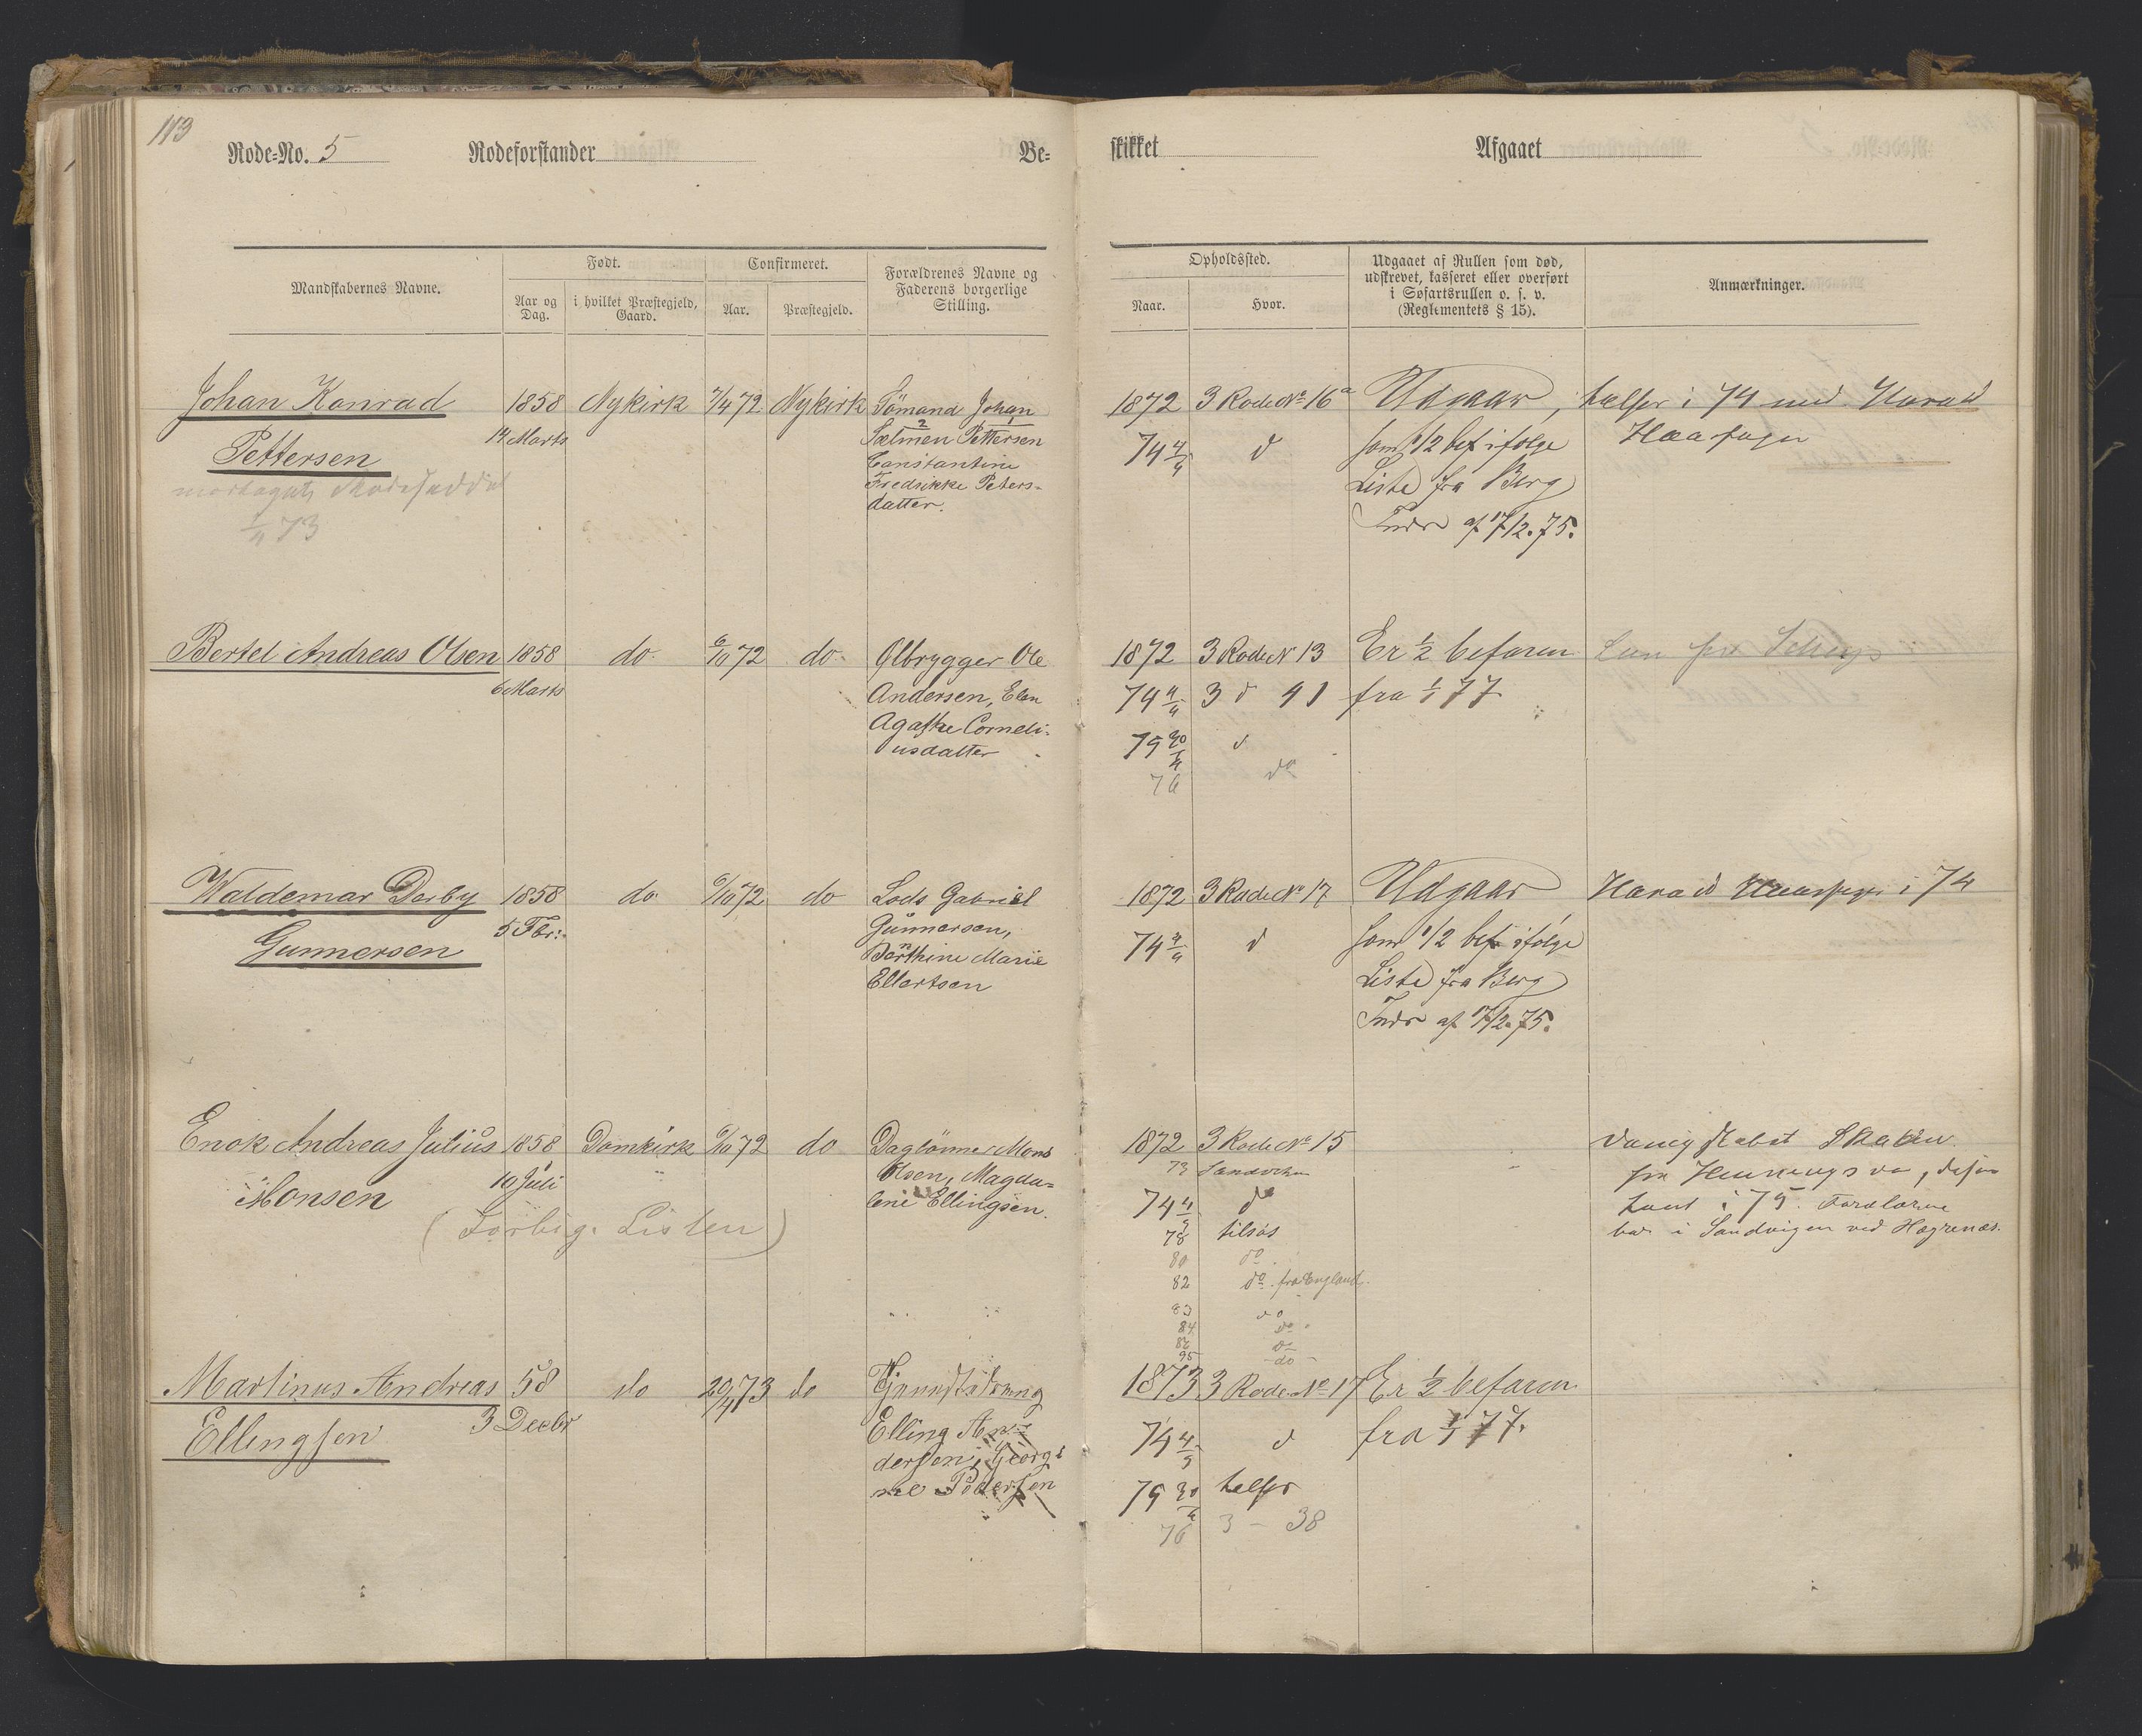 113
Rode-No. 5 Rodeforstander Be-
skikket Afgaaet
Mandskabernes Navne.
Født.
Aar og Dag.
i hvilket Præstegjeld, Gaard.
Confirmeret.
Aar.
Præstegjeld.
Forældrenes Navne og
Faderens borgerlige
Stilling.
Opholdssted.
Naar.
Hvor.
Udgaaet af Rullen som død,
udskrevet, kasseret eller overført
i Søfartsrullen o. s. v.
(Reglementets § 15).
Anmærkninger.
Johan Konrad 1858 Nykirk 7/4 72 Nykirk Sømand Johan
Pettersen 14 Marts Sælmen Pettersen
Constantine
Fredrikke Peters-
datter.
modtaget Rodeseddel
1/4 73
1872 3 Rode No 16a Udgaar, helser i 74 med Harald
74 4/4 d som 1/2 bef ifølge Haarfager
Liste fra Berg
Indr af 17/2.75.
Bertel Andreas Olsen 1858 do 6/10 72 do Ølbrygger Ole
6 Marts Andersen, Elen
Agathe Corneli-
usdatter
1872 3 Rode N 13 Er 1/2 befaren
74 4/4 3 d 41 fra 1/1 77
75 30/4 d
76 do
Waldemar Derby 1858 do 6/10 72 do Lods Gabriel
Gunnersen 5 Fbr: Gunnersen,
Børthine Marie
Ellertsen
1872 3 Rode No 17 Udgaar Harald Haarfager i 74
74 4/4 d som 1/2 bef ifølge
Liste fra Berg
Indr af 17/2.75.
Enok Andreas Julius 1858 Domkirk 6/10 72 do Daglönner Mons
Monsen 10 Juli Olsen, Magda-
lene Ellingsen.
(Forbig. Listen)
1872 3 Rode No 15
73 Sandviken
74 4/4 do
78 tilsøs
80 do
82 do fra England.
83 do
84 do
86 do
95 do
Dampskabet
i 75. Forældrene
bor i Sandvigen ved Hægrenæs.
Martinus Andreas 58 do 20/4 73 do
Ellingsen 3 Decbr Elling An-
dersen, Georgi-
ne Pedersen
1873 3 Rode No 17 Er 1/2 befaren
74 4/4 d fra 1/1 77.
75 30/4 helser
76 3 - 38